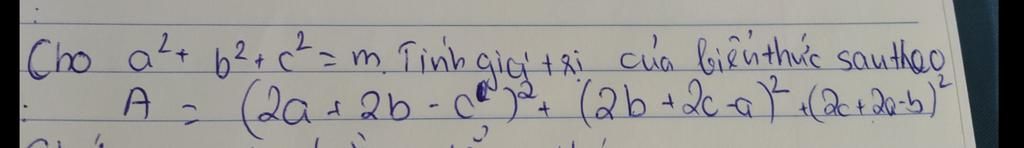 Cho a² + b² + c² = m. Tính giá trị của biểu thức sau theo
A = (2a + 2b - c)² + (2b + 2c - a)² + (2c + 2a - b)²